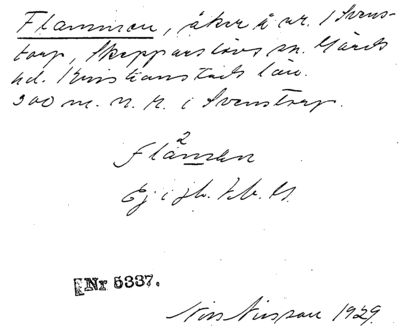 Flammen, åker å nr. 1 Svens-
torp, Skepparslövs sn. Gärds
hd. Kristianstads län.
300 m. n. n. i Svenstorp.
2
flåmen
Ej i jb.
[Nr 5337.
Nils Nilsson 1929.